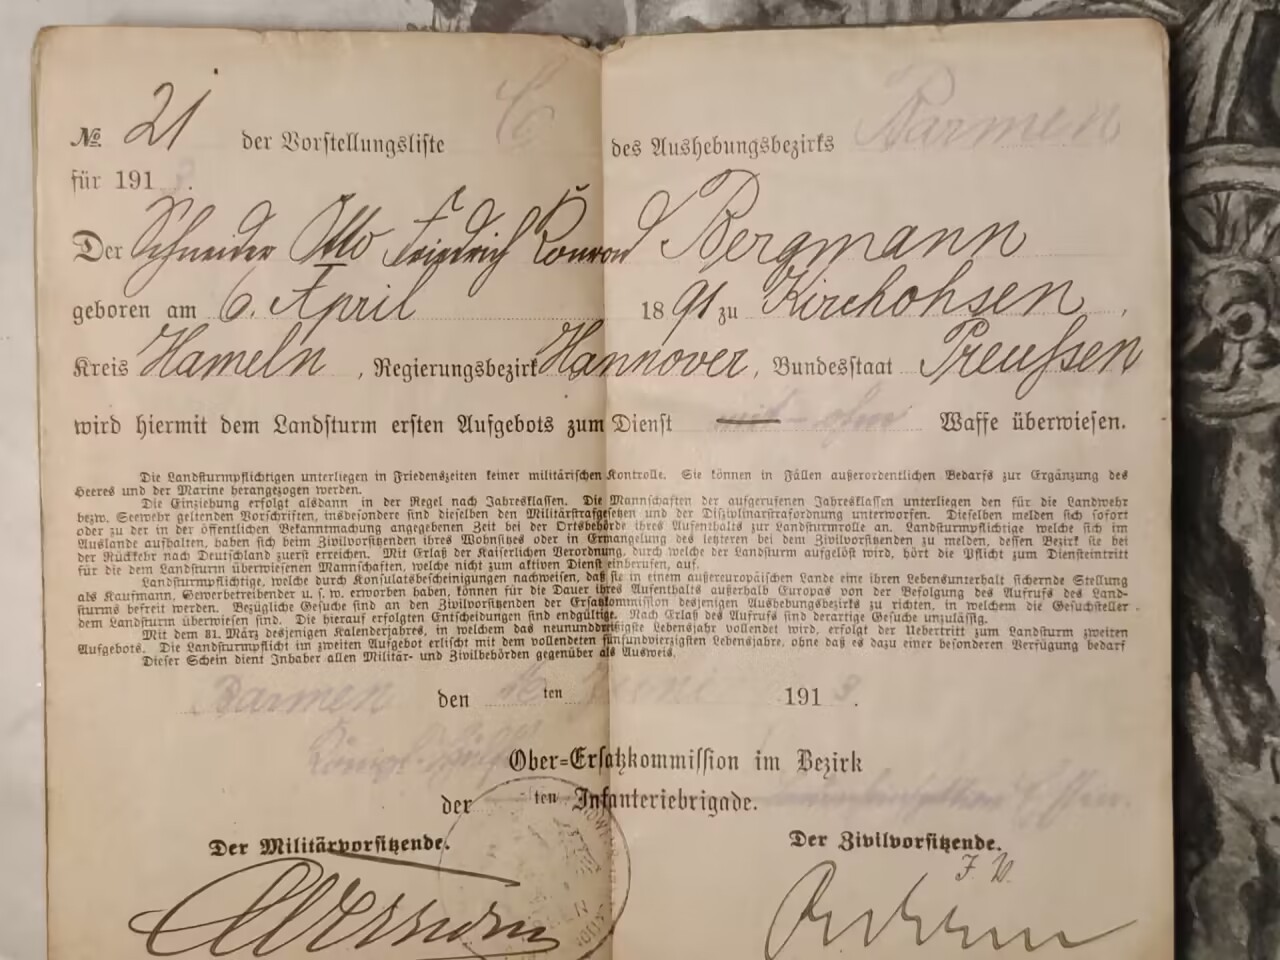 № 21 der Vorstellungsliste C des Aushebungsbezirks Barmen
für 191 3.
Der Schneider Otto Friedrich Konrad Bergmann
geboren am 6. April 1891 zu Kirchohsen,
Kreis Hameln, Regierungsbezirk Hannover, Bundesstaat Preußen
wird hiermit dem Landsturm ersten Aufgebots zum Dienst mit ohne Waffe überwiesen.
Die Landsturmpflichtigen unterliegen in Friedenszeiten keiner militärischen Kontrolle. Sie können in Fällen außerordentlichen Bedarfs zur Ergänzung des
Heeres und der Marine herangezogen werden.
Die Einziehung erfolgt alsdann in der Regel nach Jahresklassen. Die Mannschaften der aufgerufenen Jahresklassen unterliegen den für die Landwehr
bezw. Seewehr geltenden Vorschriften, insbesondere sind dieselben den Militärstrafgesetzen und der Disziplinarstrafordnung unterworfen. Dieselben melden sich sofort
oder zu der in der öffentlichen Bekanntmachung angegebenen Zeit bei der Ortsbehörde ihres Aufenthalts zur Landsturmrolle an. Landsturmpflichtige welche sich im
Auslande aufhalten, haben sich beim Zivilvorsitzenden ihres Wohnsitzes oder in Ermangelung des letzteren bei dem Zivilvorsitzenden zu melden, dessen Bezirk sie bei
der Rückkehr nach Deutschland zuerst erreichen. Mit Erlaß der Kaiserlichen Verordnung, durch welche der Landsturm aufgelöst wird, hört die Pflicht zum Diensteintritt
für die dem Landsturm überwiesenen Mannschaften, welche nicht zum aktiven Dienst einberufen, auf.
Landsturmpflichtige, welche durch Konsulatsbescheinigungen nachweisen, daß sie in einem außereuropäischen Lande eine ihren Lebensunterhalt sichernde Stellung
als Kaufmann, Gewerbetreibender u. s. w. erworben haben, können für die Dauer ihres Aufenthalts außerhalb Europas von der Befolgung des Aufrufs des Land-
sturms befreit werden. Bezügliche Gesuche sind an den Zivilvorsitzenden der Ersatzkommission desjenigen Aushebungsbezirks zu richten, in welchem die Gesuchsteller
dem Landsturm überwiesen sind. Die hierauf erfolgten Entscheidungen sind endgültige. Nach Erlaß des Aufrufs sind derartige Gesuche unzulässig.
Mit dem 31. März desjenigen Kalenderjahres, in welchem das neununddreißigste Lebensjahr vollendet wird, erfolgt der Uebertritt zum Landsturm zweiten
Aufgebots. Die Landsturmpflicht im zweiten Aufgebot erlischt mit dem vollendeten fünfundvierzigsten Lebensjahre, ohne daß es dazu einer besonderen Verfügung bedarf
Dieser Schein dient Inhaber allen Militär- und Zivilbehörden gegenüber als Ausweis.
Barmen den ten Juni 191 3.
Königl.
Ober-Ersatzkommission im Bezirk
der ten Infanteriebrigade. Essen.
Der Militärvorsitzende. Der Zivilvorsitzende.
J. V.